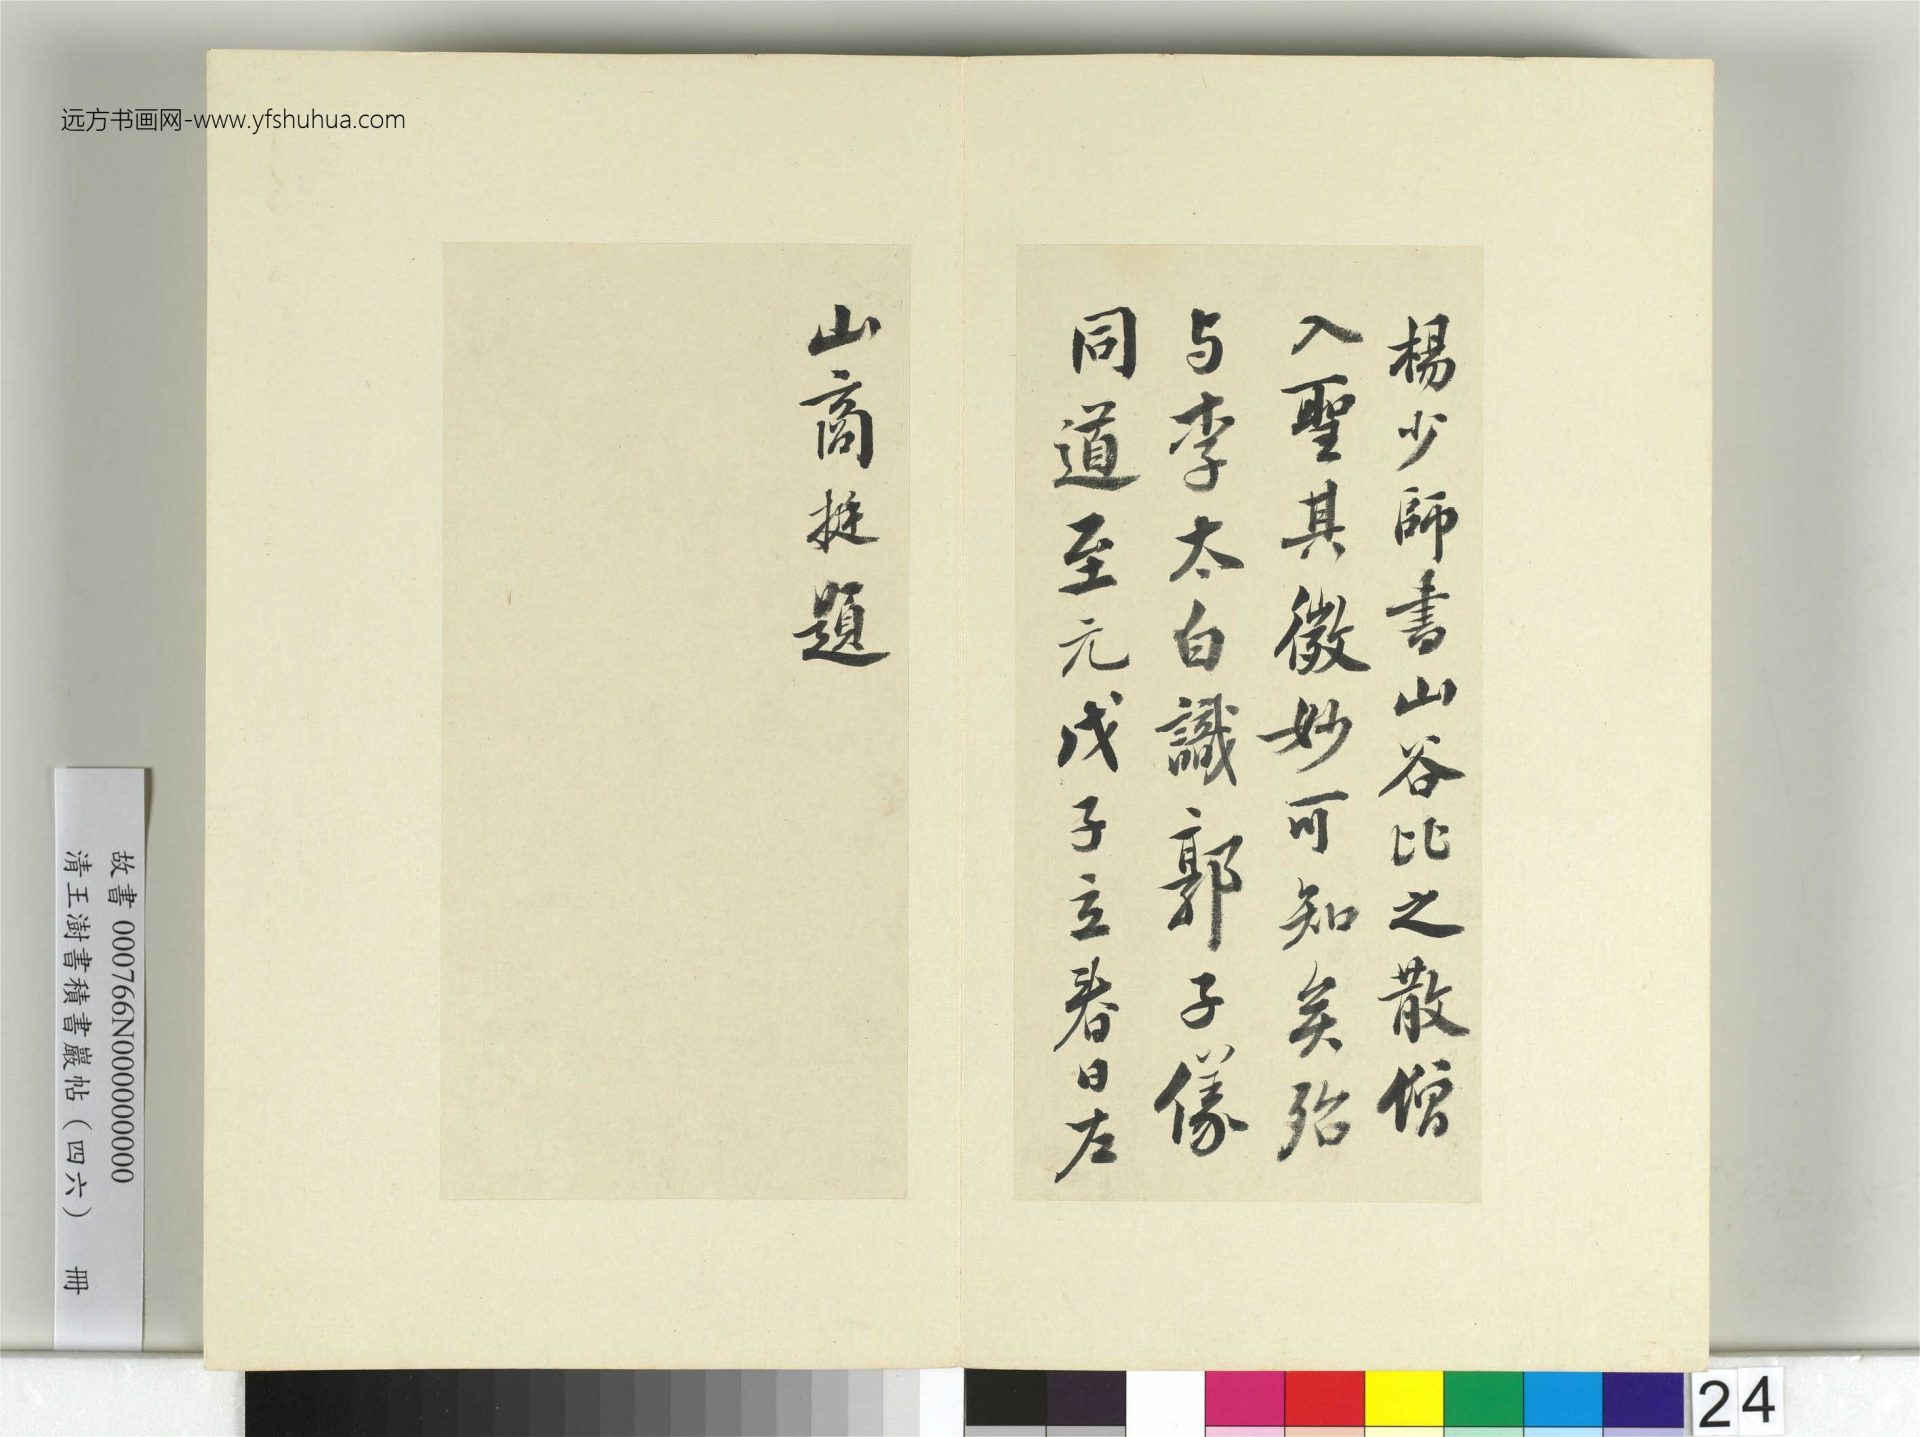 远方书画网-www.yfshuhua.com
楊少師書山谷比之散僧
入聖其微妙可知矣殆
与李太白識郭子儀
同道至元戊子立春日左
山商挺題
故書 000766N000000000
清王澍書積書巖帖（四六） 冊
24